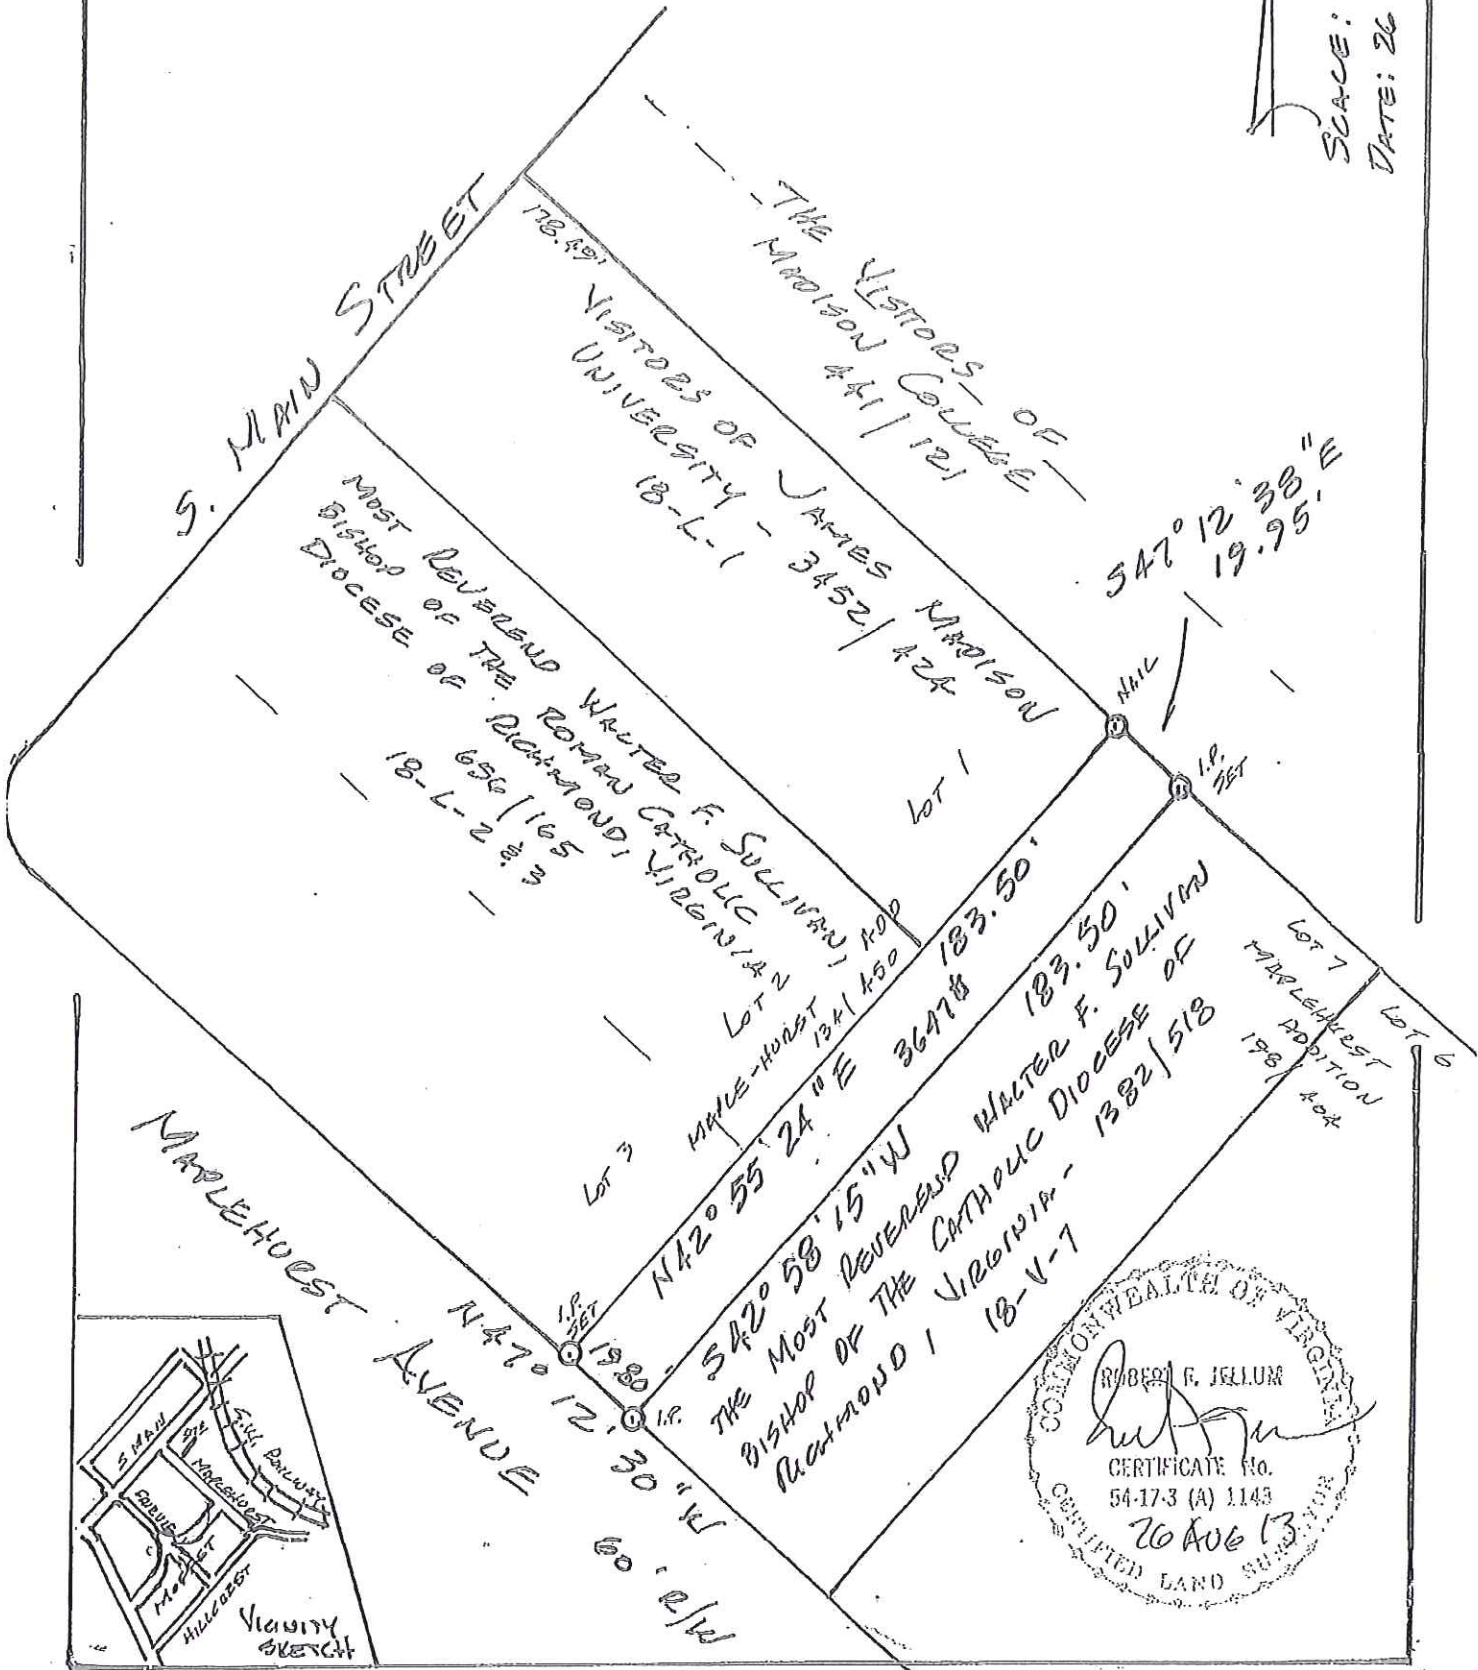 SCALE:
DATE: 26
S. MAIN STREET
178.49'
THE VISITORS OF
MADISON COLLEGE
441/121
VISITORS OF JAMES MADISON
UNIVERSITY - 3452/424
18-L-1
LOT 1
MOST REVEREND WALTER F. SULLIVAN,
BISHOP OF THE ROMAN CATHOLIC
DIOCESE OF RICHMOND, VIRGINIA
656/165
18-L-2 & 3
LOT 2
LOT 3
MAPLE-HURST ADD
134/450
S47° 12' 38" E
19.95'
NAIL
I.P. SET
N42° 55' 24" E 183.50'
3647
S42° 58' 15" W 183.50'
THE MOST REVEREND WALTER F. SULLIVAN
BISHOP OF THE CATHOLIC DIOCESE OF
RICHMOND, VIRGINIA - 1382/518
18-V-7
LOT 7
LOT 6
MAPLEHURST
ADDITION
198/404
MAPLEHURST AVENUE
I.P. SET
19.80
I.P.
N47° 12' 30" W
60' R/W
COMMONWEALTH OF VIRGINIA
ROBERT F. JELLUM
CERTIFICATE No.
54-17-3 (A) 1143
26 AUG 13
CERTIFIED LAND SURVEYOR
S MAIN
SITE
MAPLEHURST
HILLCREST
VICINITY
SKETCH